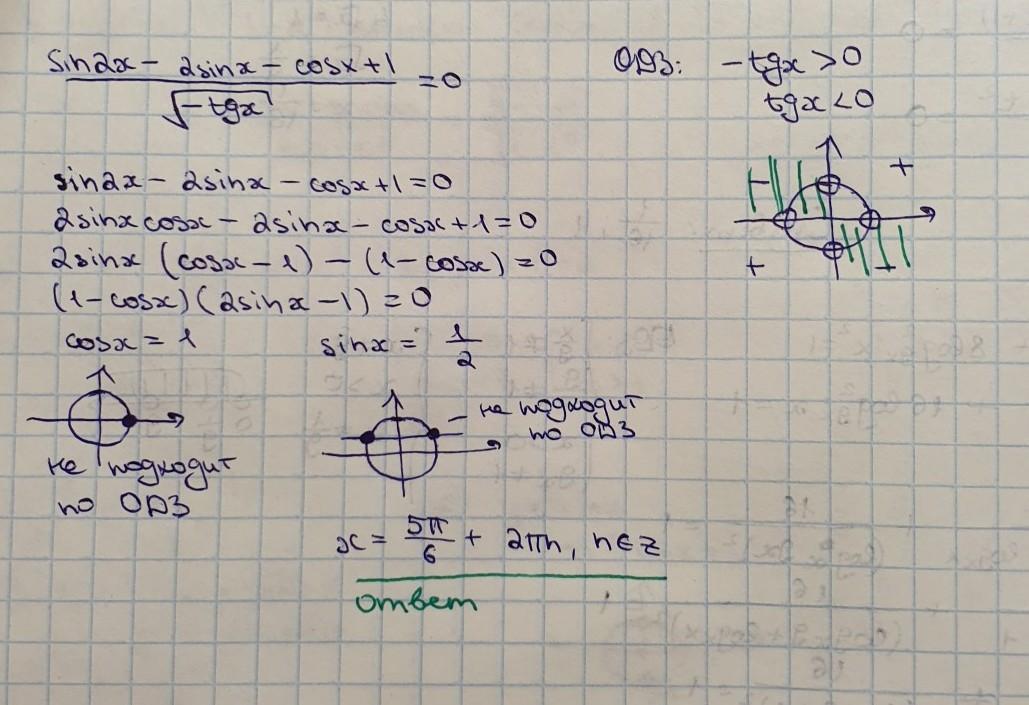 sin2x − 2sinx − cosx + 1 / √(−tgx) = 0
ОДЗ: −tgx > 0
tgx < 0
− +
+ −
sin2x − 2sinx − cosx + 1 = 0
2sinxcosx − 2sinx − cosx + 1 = 0
2sinx (cosx − 1) − (1 − cosx) = 0
(1 − cosx)(2sinx − 1) = 0
cosx = 1
sinx = 1/2
не подходит
по ОДЗ
не подходит
по ОДЗ
x = 5π/6 + 2πn, n∈Z
ответ